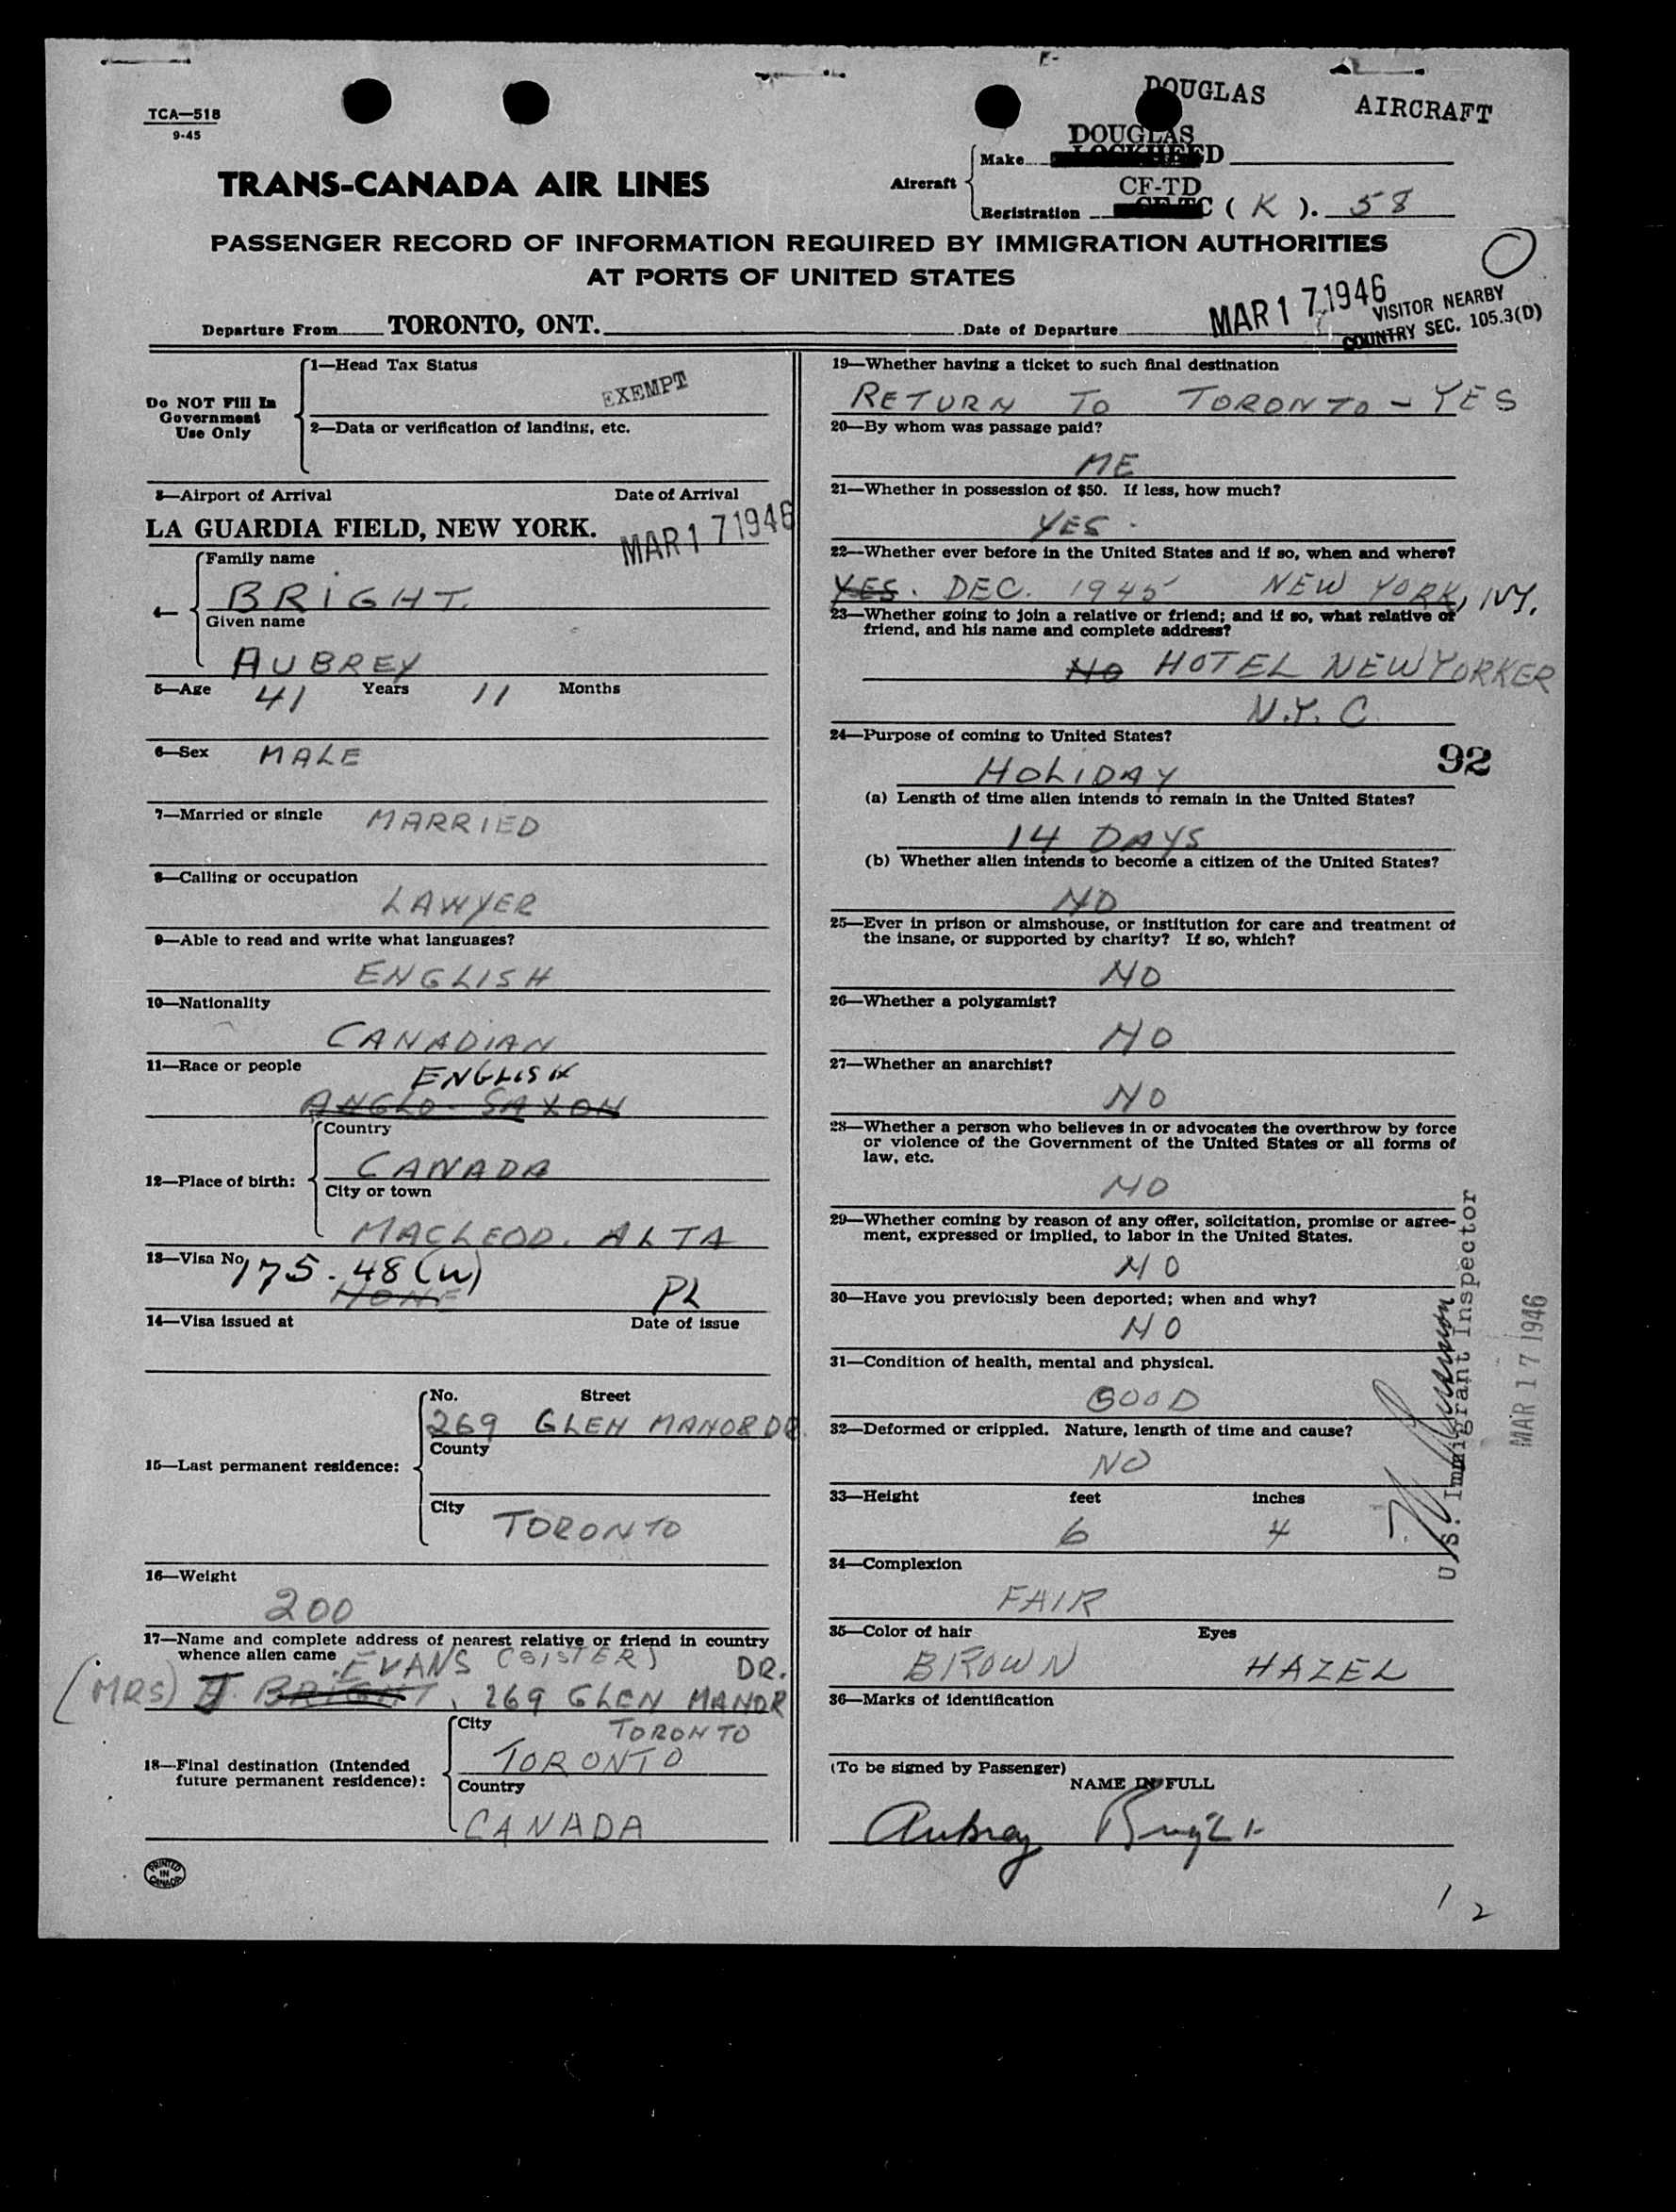 DOUGLAS AIRCRAFT
TCA—518
9-45
TRANS-CANADA AIR LINES
Aircraft
DOUGLAS
Make LOCKHEED
CF-TD
Registration CF-TC ( K ). 58
PASSENGER RECORD OF INFORMATION REQUIRED BY IMMIGRATION AUTHORITIES
AT PORTS OF UNITED STATES
Departure From TORONTO, ONT. Date of Departure MAR 17 1946
VISITOR NEARBY
COUNTRY SEC. 105.3(D)
Do NOT Fill In
Government
Use Only
1—Head Tax Status
EXEMPT
2—Data or verification of landing, etc.
3—Airport of Arrival Date of Arrival
LA GUARDIA FIELD, NEW YORK. MAR 17 1946
4—
Family name
BRIGHT.
Given name
AUBREY
5—Age 41 Years 11 Months
6—Sex MALE
7—Married or single MARRIED
8—Calling or occupation
LAWYER
9—Able to read and write what languages?
ENGLISH
10—Nationality
CANADIAN
11—Race or people
ENGLISH
ANGLO-SAXON
12—Place of birth:
Country
CANADA
City or town
MACLEOD. ALTA
13—Visa No. 175.48(W)
NONE PL
14—Visa issued at Date of issue
15—Last permanent residence:
No. Street
269 GLEN MANOR DR.
County
City
TORONTO
16—Weight
200
17—Name and complete address of nearest relative or friend in country
whence alien came EVANS (SISTER) DR.
(MRS) J. BRIGHT, 269 GLEN MANOR
TORONTO
18—Final destination (Intended
future permanent residence):
City
TORONTO
Country
CANADA
PRINTED
IN
CANADA
19—Whether having a ticket to such final destination
RETURN TO TORONTO - YES
20—By whom was passage paid?
ME
21—Whether in possession of $50. If less, how much?
YES.
22—Whether ever before in the United States and if so, when and where?
YES. DEC. 1945 NEW YORK, NY.
23—Whether going to join a relative or friend; and if so, what relative or
friend, and his name and complete address?
NO HOTEL NEWYORKER
N.Y. C
24—Purpose of coming to United States?
HOLIDAY
92
(a) Length of time alien intends to remain in the United States?
14 DAYS
(b) Whether alien intends to become a citizen of the United States?
NO
25—Ever in prison or almshouse, or institution for care and treatment of
the insane, or supported by charity? If so, which?
NO
26—Whether a polygamist?
NO
27—Whether an anarchist?
NO
28—Whether a person who believes in or advocates the overthrow by force
or violence of the Government of the United States or all forms of
law, etc.
NO
29—Whether coming by reason of any offer, solicitation, promise or agree-
ment, expressed or implied, to labor in the United States.
NO
30—Have you previously been deported; when and why?
NO
31—Condition of health, mental and physical.
GOOD
32—Deformed or crippled. Nature, length of time and cause?
NO
33—Height feet inches
6 4
34—Complexion
FAIR
35—Color of hair Eyes
BROWN HAZEL
36—Marks of identification
(To be signed by Passenger)
NAME IN FULL
Aubrey Bright
U.S. Immigrant Inspector
MAR 17 1946
1 2